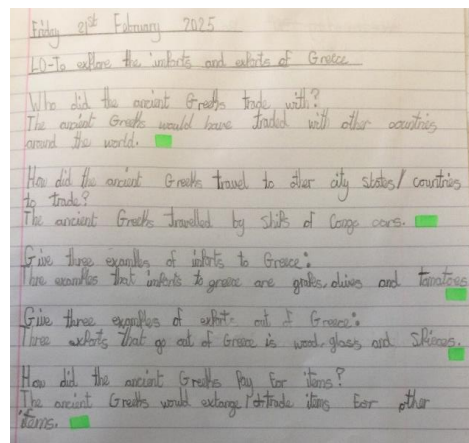 Friday 21st February 2025
LO-To explore the imports and exports of Greece
Who did the ancient Greeks trade with?
The ancient Greeks would have traded with other countries
around the world.
How did the ancient Greeks travel to other city states/ countries
to trade?
The ancient Greeks travelled by ships of Congo cars.
Give three examples of imports to Greece:
Three examples that imports to greece are grapes, olives and tomatoes
Give three examples of export out of Greece:
Three exports that go out of Greece is wood, glass and spices.
How did the ancient Greeks pay for items?
The ancient Greeks would trade items for other
items.